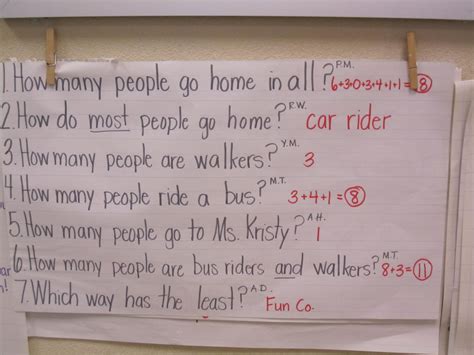 1. How many people go home in all? P.M. 6+3+0+3+4+1+1=8
2. How do most people go home? R.W. car rider
3. How many people are walkers? Y.M. 3
4. How many people ride a bus? M.T. 3+4+1=8
5. How many people go to Ms. Kristy? A.H. 1
6. How many people are bus riders and walkers? M.T. 8+3=11
7. Which way has the least? A.D. Fun Co.